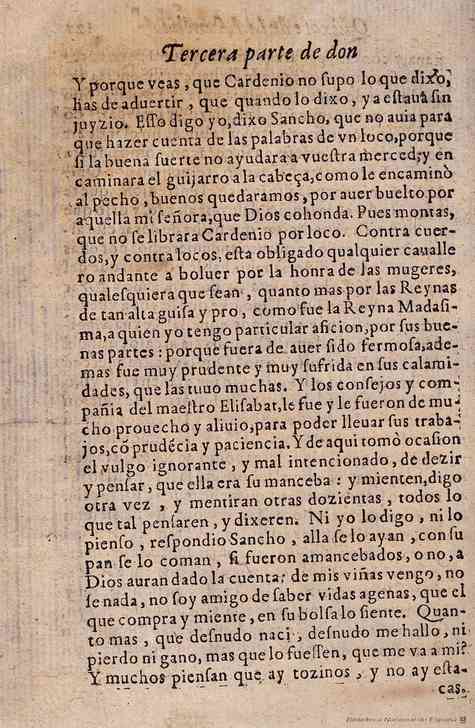 Tercera parte de don
Y porque veas, que Cardenio no supo lo que dixo,
has de aduertir, que quando lo dixo, ya estaua sin
juyzio. Esso digo yo, dixo Sancho, que no auia para
que hazer cuenta de las palabras de vn loco, porque
si la buena suerte no ayudara a vuestra merced, y en
caminara el guijarro a la cabeça, como le encaminò
al pecho, buenos quedaramos, por auer buelto por
aquella mi señora, que Dios cohonda. Pues montas,
que no se librara Cardenio por loco. Contra cuer-
dos, y contra locos, està obligado qualquier caualle
ro andante a boluer por la honra de las mugeres,
qualesquiera que sean, quanto mas por las Reynas
de tan alta guisa y pro, como fue la Reyna Madasi-
ma, a quien yo tengo particular aficion, por sus bue-
nas partes: porque fuera de auer sido fermosa, ade-
mas fue muy prudente y muy sufrida en sus calami-
dades, que las tuuo muchas. Y los consejos y com-
pañia del maestro Elisabat, le fue y le fueron de mu-
cho prouecho y aliuio, para poder lleuar sus traba-
jos, cõ prudẽcia y paciencia. Y de aqui tomò ocasion
el vulgo ignorante, y mal intencionado, de dezir
y pensar, que ella era su manceba: y mienten, digo
otra vez, y mentiran otras dozientas, todos lo
que tal pensaren, y dixeren. Ni yo lo digo, ni lo
pienso, respondio Sancho, alla se lo ayan, con su
pan se lo coman, si fueron amancebados, o no, a
Dios auran dado la cuenta: de mis viñas vengo, no
se nada, no soy amigo de saber vidas agenas, que el
que compra y miente, en su bolsa lo siente. Quan-
to mas, que desnudo naci, desnudo me hallo, ni
pierdo ni gano, mas que lo fuessen, que me va a mi?
Y muchos piensan que ay tozinos, y no ay esta-
cas.
Biblioteca Nacional de España